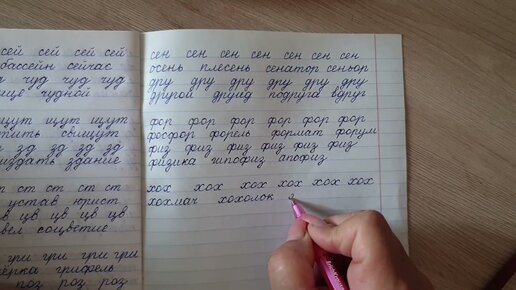 сей сей сей сей
бассейн сейчас
чуд чуд чуд
чудной
щут щут щут
свищут
зд зд зд зд
издать здание
ст ст ст ст
устав юрист
цв цв цв цв
соцветие
гри гри гри гри
грифель
поз роз роз
сен сен сен сен сен сен сен
осень плесень сенатор сеньор
дру дру дру дру дру дру
другой друид подруга вдруг
фор фор фор фор фор фор
фосфор форель формат форум
физ физ физ физ физ физ
физика гипофиз апофиз
хох хох хох хох хох хох
хохмач хохолок